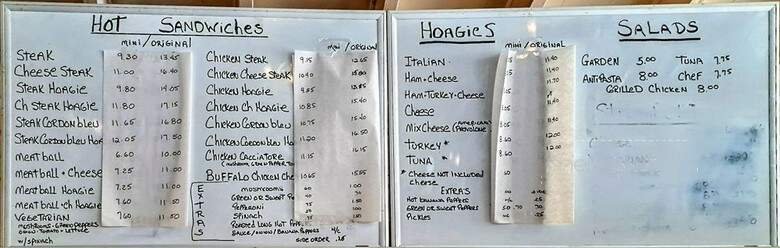 HOT SANDWICHES
MINI / ORIGINAL
STEAK 9.30 13.45
CHEESE STEAK 11.00 16.40
STEAK HOAGIE 9.80 14.05
CH STEAK HOAGIE 11.80 17.15
STEAK CORDON BLEU 11.65 16.80
STEAK CORDON BLEU HOA 12.05 17.50
MEATBALL 6.60 10.00
MEATBALL + CHEESE 7.25 11.00
MEATBALL HOAGIE 7.25 11.00
MEATBALL CH HOAGIE 7.60 11.50
VEGETARIAN 7.60 11.50
MUSHROOMS - GREEN PEPPERS
ONION - TOMATO - LETTUCE
W/SPINACH
MINI / ORIGINAL
CHICKEN STEAK 9.15 12.65
CHICKEN CHEESE STEAK 10.40 15.80
CHICKEN HOAGIE 9.65 13.85
CHICKEN CH HOAGIE 10.85 15.40
CHICKEN CORDON BLEU 10.75 15.40
CHICKEN CORDON BLEU HO 11.20 16.50
CHICKEN CACCIATORE 11.15 16.15
BUFFALO CHICKEN CHE 10.65 15.85
EXTRAS
MUSHROOMS 1.00
GREEN OR SWEET P
PEPPERONI 1.50
SPINACH
ROASTED LONG HOT PEPP
SAUCE / ONION / BANANA PEPPERS N/C
SIDE ORDER .25
HOAGIES
MINI / ORIGINAL
ITALIAN 11.40
HAM + CHEESE 11.40
HAM - TURKEY - CHEESE 11.70
CHEESE 11.40
MIX CHEESE (AMERICAN PROVOLONE 8.05 11.40
TURKEY * 8.60 12.00
TUNA * 8.60 12.00
* CHEESE NOT INCLUDED
CHEESE .60
EXTRAS
HOT BANANA PEPPERS N/C .25
GREEN OR SWEET PEPPERS .50 .70
PICKLES N/C .25
SALADS
GARDEN 5.00 TUNA 7.75
ANTIPASTA 8.00 CHEF 7.75
GRILLED CHICKEN 8.00